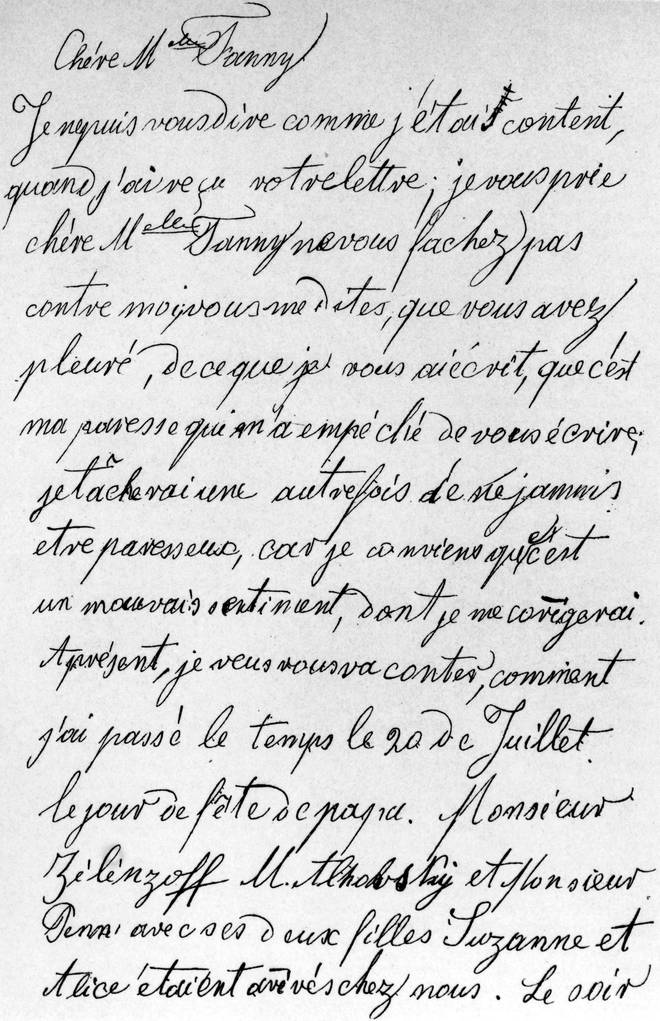 Chére M elle Fanny
Je ne puis vous dire comme j'étais content,
quand j'ai reçu votre lettre; je vous prie
chère M elle Fanny ne vous fachez pas
contre moi, vous me dites, que vous avez
pleuré, de ce que je vous ai écrit, que c'ést
ma paresse qui m'a empéché de vous écrire;
je tâcherai une autre fois de ne jamais
etre paresseux, car je conviens que c'est
un mauvais sentiment, dont je me corigerai.
Aprésent, je veus vous raconter, comment
j'ai passé le temps le 20 de Juillet
le jour de fête de papa. Monsieur
Zélénzoff M. et Monsieur
avec ses deux filles Suzanne et
Alice étaient arivés chez nous. Le soir